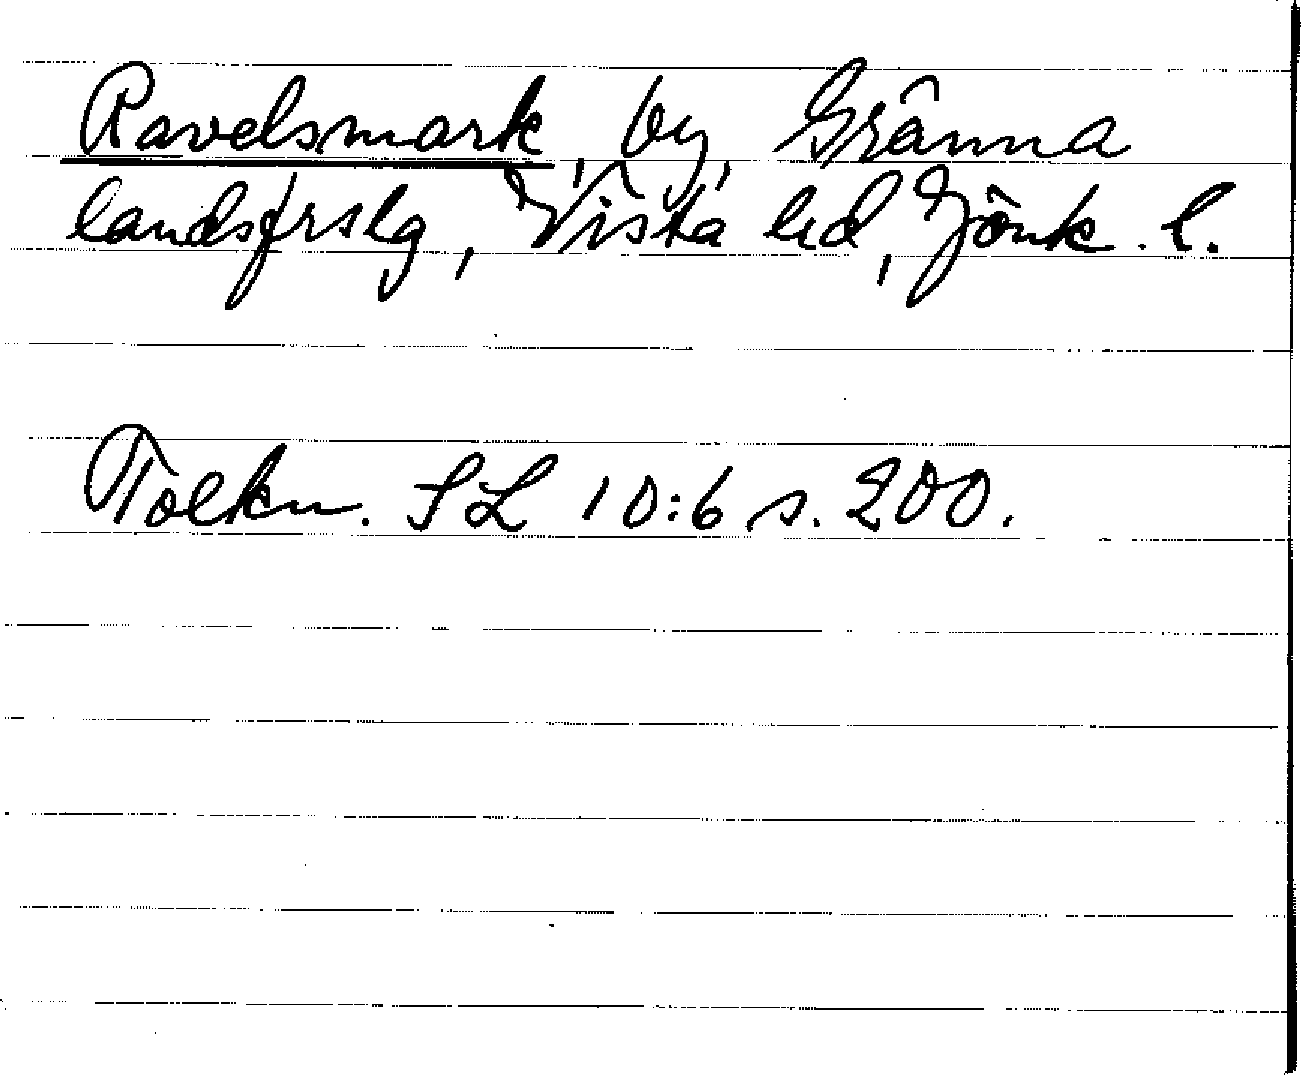 Ravelsmark, by, Gränna
landsförslg, Vista hd, Jönk. l.
Tolkn. SL 10:6 s. 200.